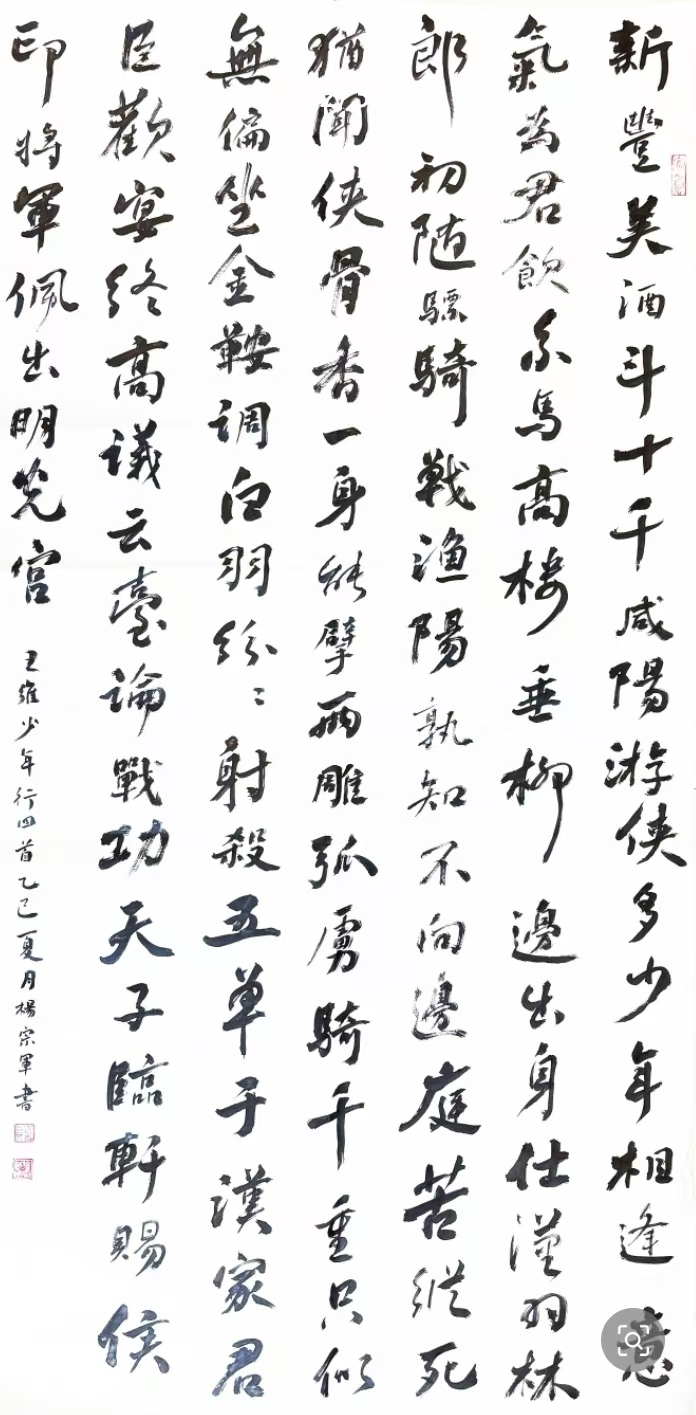 新豐美酒斗十千咸陽游俠多少年相逢意
氣為君飲系馬高樓垂柳邊出身仕漢羽林
郎初随驃騎戰漁陽孰知不向邊庭苦縱死
猶聞俠骨香一身能擘兩雕弧虜騎千重只似
無偏坐金鞍調白羽紛〻射殺五单于漢家君
臣歡宴終高議云臺論戰功天子臨軒賜侯
印將軍佩出明光宫
王維少年行四首乙巳夏月楊宗軍書